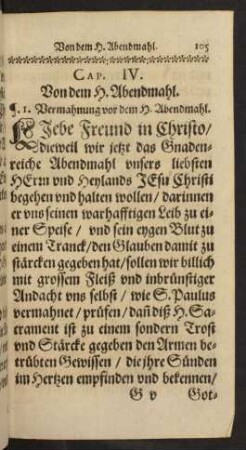 Von dem H. Abendmahl. 105
CAP. IV.
Von dem H. Abendmahl.
¶. 1. Vermahnung vor dem H. Abendmahl.
LJebe Freund in Christo/
dieweil wir jetzt das Gnaden-
reiche Abendmahl vnsers liebsten
HErrn vnd Heylands JEsu Christi
begehen vnd halten wollen/ darinnen
er vns seinen warhafftigen Leib zu ei-
ner Speise/ vnd sein eygen Blut zu
einem Tranck/ den Glauben damit zu
stärcken gegeben hat/ sollen wir billich
mit grossem Fleiß vnd inbrünstiger
Andacht vns selbst/ wie S. Paulus
vermahnet/ prüfen/ dañ diß H. Sa-
crament ist zu einem sondern Trost
vnd Stärcke gegeben den Armen be-
trübten Gewissen/ die jhre Sünden
im Hertzen empfinden vnd bekennen/
G v Got-